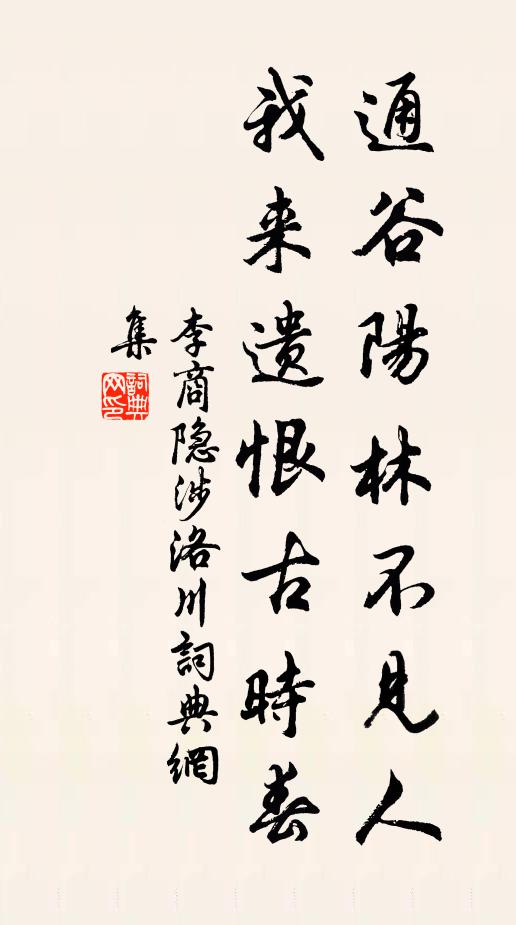 通谷陽林不見人
我来遺恨古時春
李商隐涉洛川詞典網
集
詞典网印